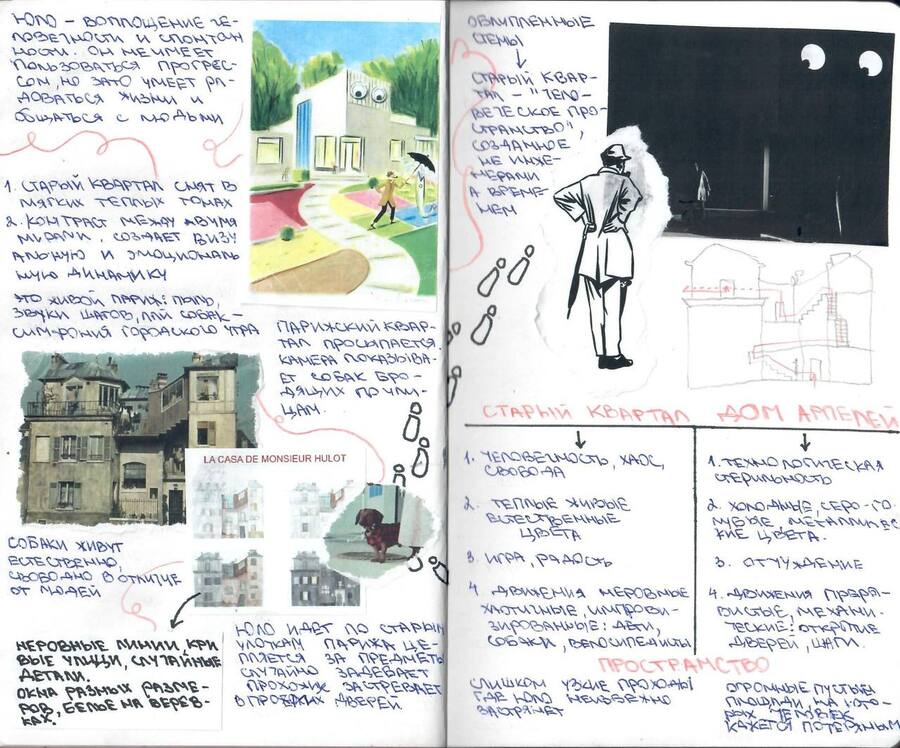 ЮЛО – ВОПЛОЩЕНИЕ ЧЕ-
ЛОВЕЧНОСТИ И СПОНТАН
НОСТИ. ОН НЕ УМЕЕТ
ПОЛЬЗОВАТЬСЯ ПРОГРЕС-
СОМ, НО ЗАТО УМЕЕТ РА-
ДОВАТЬСЯ ЖИЗНИ И
ОБЩАТЬСЯ С ЛЮДЬМИ
1. СТАРЫЙ КВАРТАЛ СНЯТ В
МЯГКИХ ТЕПЛЫХ ТОНАХ
2. КОНТРАСТ МЕЖДУ ДВУМЯ
МИРАМИ, СОЗДАЕТ ВИЗУ
АЛЬНУЮ И ЭМОЦИОНАЛЬ
НУЮ ДИНАМИКУ
ЭТО ЖИВОЙ ПАРИЖ: ПЫЛЬ,
ЗВУКИ ШАГОВ, ЛАЙ СОБАК-
СИМФОНИЯ ГОРОДСКОГО УТРА
ПАРИЖСКИЙ КВАР-
ТАЛ ПРОСЫПАЕТСЯ.
КАМЕРА ПОКАЗЫВА-
ЕТ СОБАК БРО-
ДЯЩИХ ПО УЛИ-
ЦАМ.
LA CASA DE MONSIEUR HULOT
СОБАКИ ЖИВУТ
ЕСТЕСТВЕННО,
СВОБОДНО В ОТЛИЧИЕ
ОТ ЛЮДЕЙ
НЕРОВНЫЕ ЛИНИИ, КРИ
ВЫЕ УЛИЦИ, СЛУЧАЙНЫЕ
ДЕТАЛИ.
ОКНА РАЗНЫХ РАЗМЕ-
РОВ, БЕЛЬЕ НА ВЕРЕВ-
КАХ.
ЮЛО ИДЕТ ПО СТАРЫМ
УЛОЧКАМ ПАРИЖА ЦЕ-
ПЛЯЕТСЯ ЗА ПРЕДМЕТЫ
СЛУЧАЙНО ЗАДЕВАЕТ
ПРОХОЖИХ ЗАСТРЕВАЕТ
В ДВЕРЕЙ
ОБЛУПЛЕННЫЕ
СТЕНЫ
СТАРЫЙ КВАР-
ТАЛ – "ЧЕЛО-
ВЕЧЕСКОЕ ПРО-
СТРАНСТВО",
СОЗДАННОЕ
НЕ ИНЖЕ-
НЕРАМИ
А ВРЕМЕ-
НЕМ
СТАРЫЙ КВАРТАЛ
1. ЧЕЛОВЕЧНОСТЬ, ХАОС,
СВОБОДА
2. ТЕПЛЫЕ ЖИВЫЕ
ЕСТЕСТВЕННЫЕ
ЦВЕТА
3. ИГРА, РАДОСТЬ
4. ДВИЖЕНИЯ НЕРОВНЫЕ
ХАОТИЧНЫЕ, ИМПРОВИ-
ЗИРОВАННЫЕ: ДЕТИ,
СОБАКИ, ВЕЛОСИПЕДИСТЫ
ДОМ АРПЕЛЕЙ
1. ТЕХНОЛОГИЧЕСКАЯ
СТЕРИЛЬНОСТЬ
2. ХОЛОДНЫЕ, СЕРО-ГО-
ЛУБЫЕ, МЕТАЛЛИЧЕС
КИЕ ЦВЕТА.
3. ОТЧУЖДЕНИЕ
4. ДВИЖЕНИЯ ПРЕРЫ-
ВИСТЫЕ, МЕХАНИ-
ЧЕСКИЕ: ОТКРЫТИЕ
ДВЕРЕЙ, ШАГИ.
ПРОСТРАНСТВО
СЛИШКОМ УЗКИЕ ПРОХОДЫ
ГДЕ ЮЛО НЕИЗБЕЖНО
ЗАСТРЯНЕТ
ОГРОМНЫЕ ПУСТЫЕ
ПЛОЩАДИ, НА КОТО-
РЫХ ЧЕЛОВЕК
КАЖЕТСЯ ПОТЕРЯНЫМ